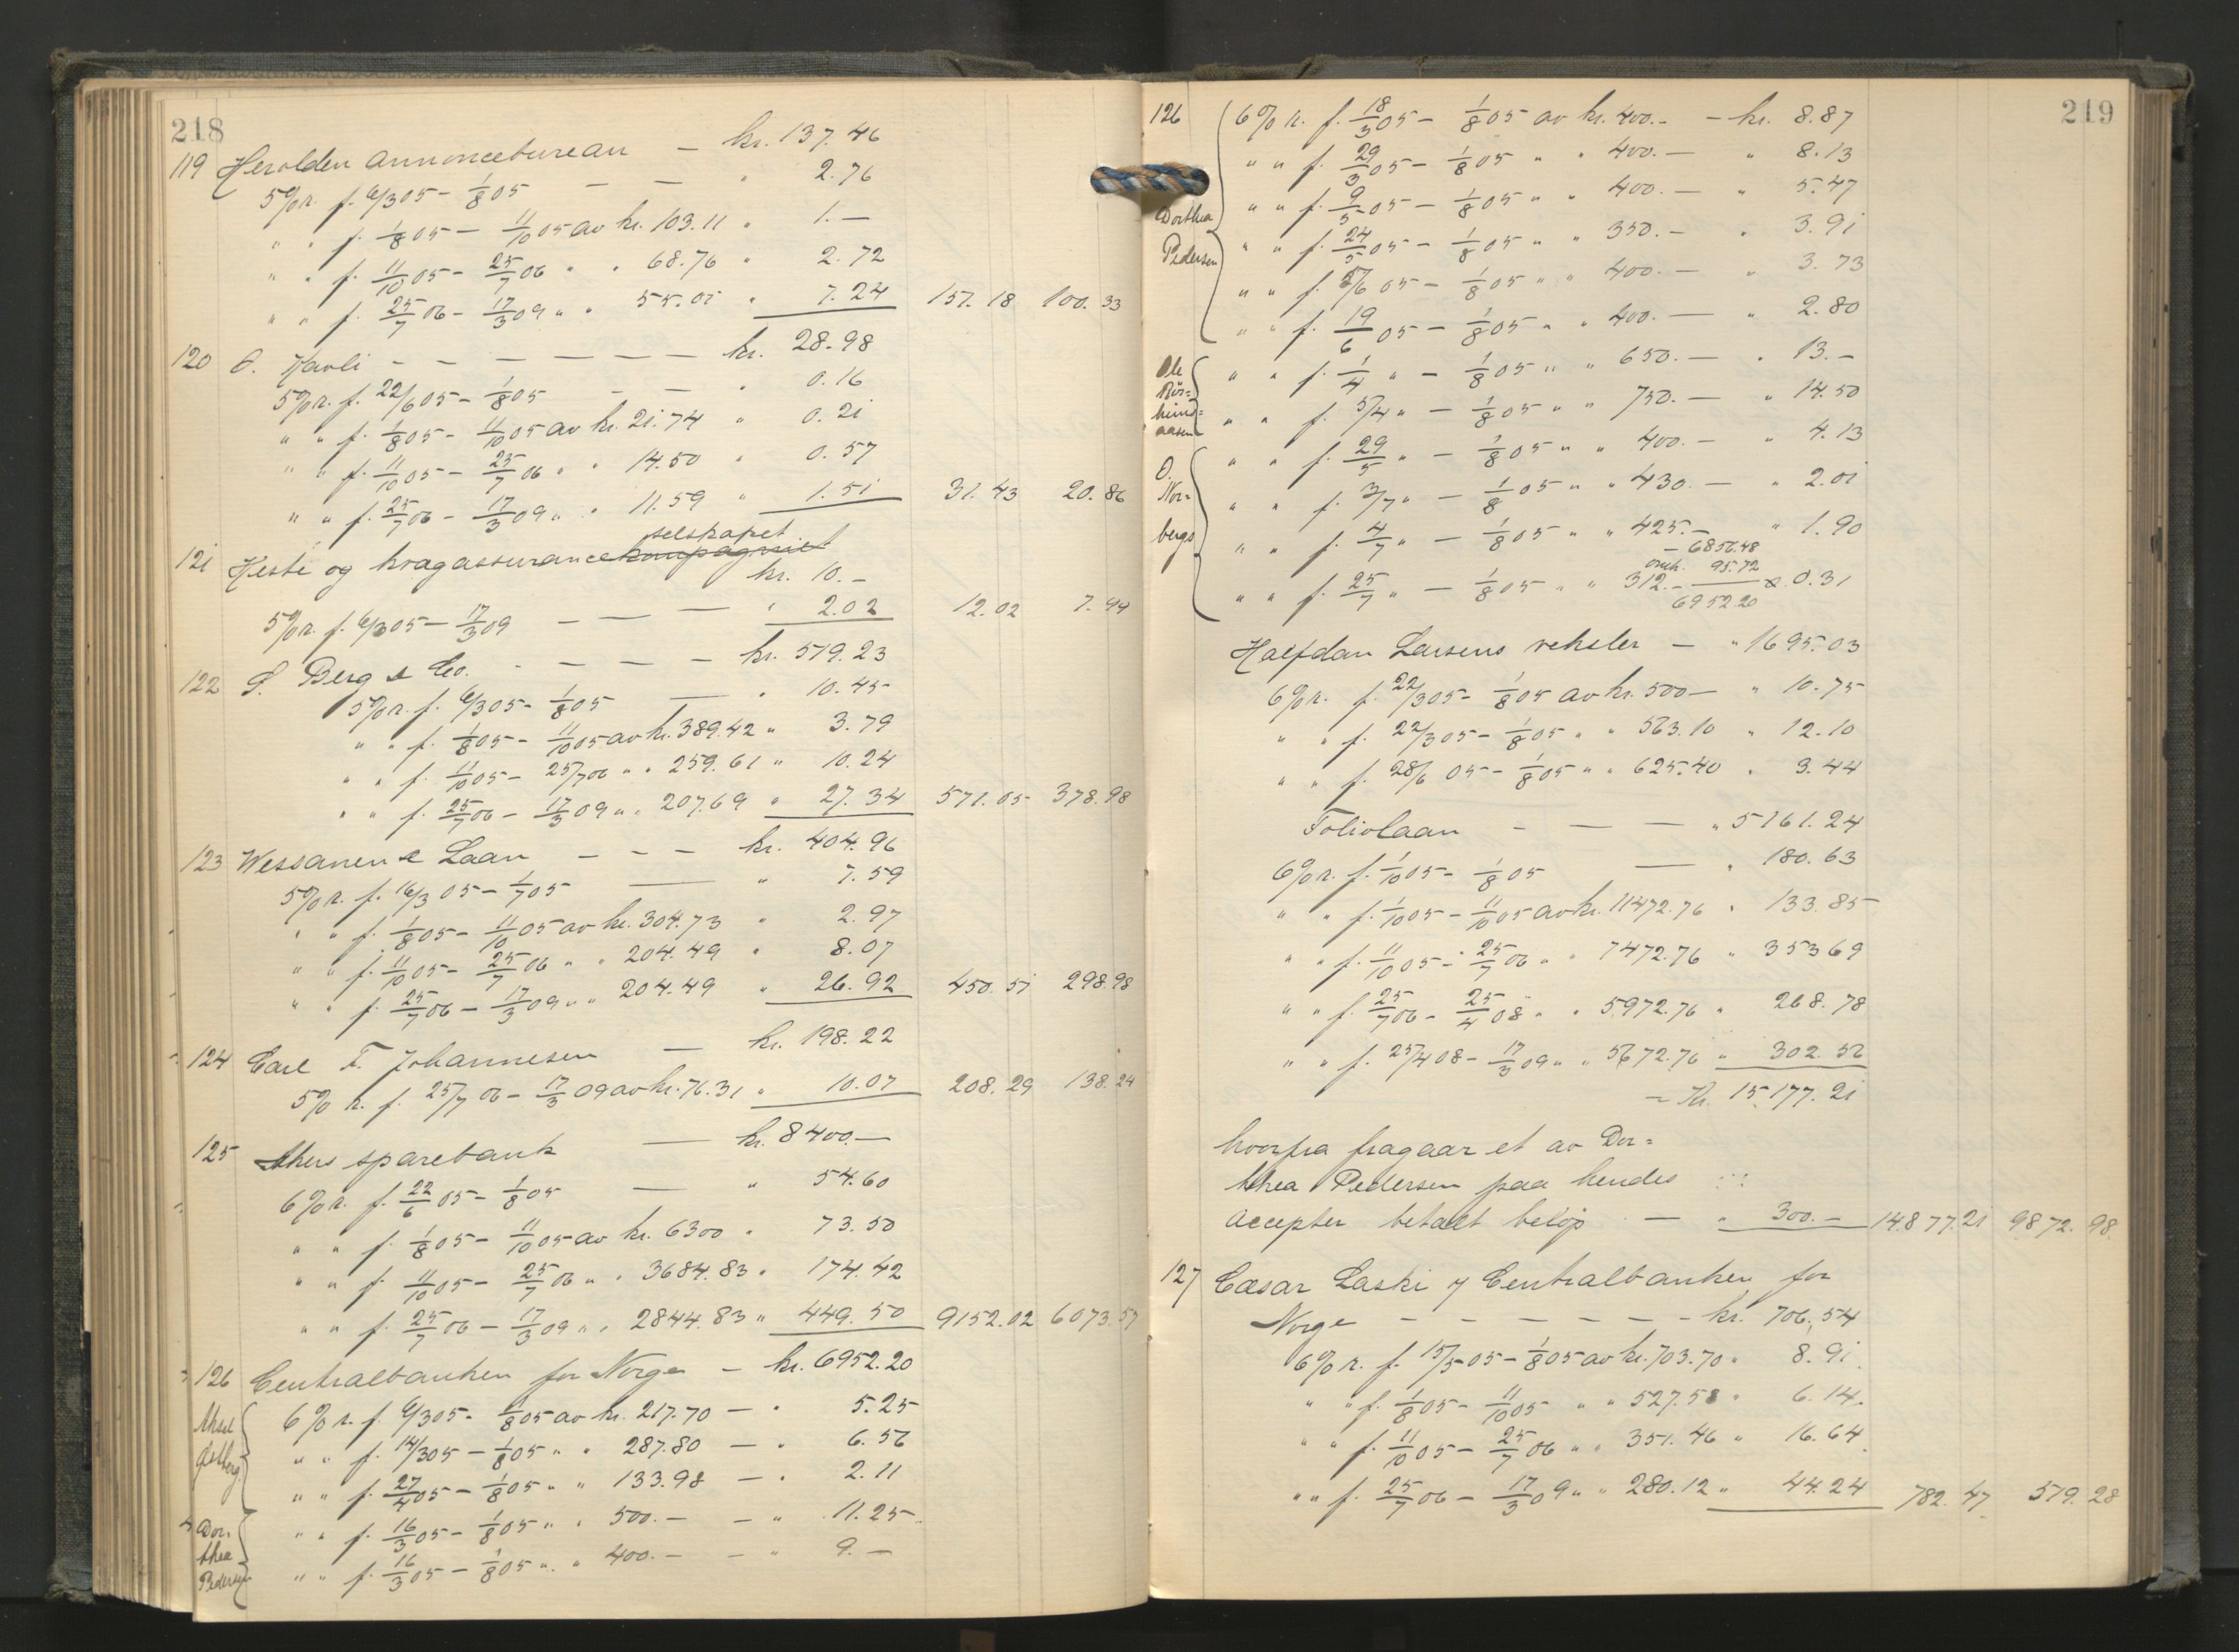 218
119 Herolden annoncebureau — kr. 137.46
5% r. f. 6/3 05 - 1/8 05 — — " 2.76
" " f. 1/8 05 - 11/10 05 av kr. 103.11 " 1.—
" " f. 11/10 05 - 25/7 06 " " 68.76 " 2.72
" " f. 25/7 06 - 17/3 09 " " 55.01 " 7.24 151.18 100.33
120 O. Kavli — — — — — — kr. 28.98
5% r. f. 22/6 05 - 1/8 05 — — " 0.16
" " f. 1/8 05 - 11/10 05 av kr. 21.74 " 0.21
" " f. 11/10 05 - 25/7 06 " " 14.50 " 0.57
" " f. 25/7 06 - 17/3 09 " " 11.59 " 1.51 31.43 20.86
selskapet
121 Heste og kvagassurancekompagniet
kr. 10.-
5% r. f. 6/3 05 - 17/3 09 — — — " 2.02 12.02 7.99
122 S. Berg & Co. - — — — kr. 519.23
5% r. f. 6/3 05 - 1/8 05 — " 10.45
" " f. 1/8 05 - 11/10 05 av kr. 389.42 " 3.79
" " f. 11/10 05 - 25/7 06 " " 259.61 " 10.24
" " f. 25/7 06 - 17/3 09 " " 207.69 " 27.34 571.05 378.98
123 Wessanen & Laan — — — kr. 404.96
5% r. f. 16/3 05 - 1/7 05 — " 7.59
" " f. 1/8 05 - 11/10 05 av kr. 304.73 " 2.97
" " f. 11/10 05 - 25/7 06 " " 204.49 " 8.07
" " f. 25/7 06 - 17/3 09 " " 204.49 " 26.92 450.51 298.98
124 Carl F. Johannesen — kr. 198.22
5% r. f. 25/7 06 - 17/3 09 av kr. 76.31 " 10.07 208.29 138.24
125 Akers sparebank — kr. 8400.—
6% r. f. 22/6 05 - 1/8 05 — " 54.60
" " f. 1/8 05 - 11/10 05 av kr. 6300 " 73.50
" " f. 11/10 05 - 25/7 06 " " 3684.83 " 174.42
" " f. 25/7 06 - 17/3 09 " " 2844.83 " 449.50 9152.02 6073.57
126 Centralbanken for Norge — kr. 6952.20
Aksel 6% r. f. 6/3 05 - 1/8 05 av kr. 217.70 — " 5.25
" " f. 14/3 05 - 1/8 05 " " 287.80 — " 6.56
" " f. 27/4 05 - 1/8 05 " " 133.98 — " 2.11
Dor- " " f. 16/3 05 - 1/8 05 " " 500.— — " 11.25
thea
Pedersen " " f. 16/3 05 - 1/8 05 " " 400.— — " 9.—
219
126 6% r. f. 18/3 05 - 1/8 05 av kr. 400.- - kr. 8.87
" " f. 29/3 05 - 1/8 05 " " 400.— " 8.13
Dorthea " " f. 9/5 05 - 1/8 05 " " 400.— " 5.47
Pedersen " " f. 24/5 05 - 1/8 05 " " 350.— " 3.91
" " f. 5/6 05 - 1/8 05 " " 400.— " 3.73
" " f. 19/6 05 - 1/8 05 " " 400.— " 2.80
Ole " " f. 1/4 " - 1/8 05 " " 650.— " 13.—
Rör-
hims-
aasen " " f. 5/4 " - 1/8 05 " " 750.— " 14.50
" " f. 29/5 " - 1/8 05 " " 400.— " 4.13
O.
Nor- " " f. 3/7 " - 1/8 05 " " 430.— " 2.01
bergs " " f. 4/7 " - 1/8 05 " " 425.— " 1.90
- 6856.48
omk. 95.72
" " f. 25/7 " - 1/8 05 " " 312.- " 0.31
6952.20
Halfdan Larsens veksler — " 1695.03
6% r. f. 22/3 05 - 1/8 05 av kr. 500 — " 10.75
" " f. 22/3 05 - 1/8 05 " " 563.10 " 12.10
" " f. 28/6 05 - 1/8 05 " " 625.40 " 3.44
Foliolaan - — — " 5161.24
6% r. f. 1/10 05 - 1/8 05 — " 180.63
" " f. 1/10 05 - 11/10 05 av kr. 11472.76 " 133.85
" " f. 11/10 05 - 25/7 06 " " 7472.76 " 353.69
" " f. 25/7 06 - 25/4 08 " " 5972.76 " 268.78
" " f. 25/4 08 - 17/3 09 " " 5672.76 " 302.56
= Kr. 15.177.21
hvorfra fragaar et av Dor-
thea Pedersen paa hendes
accepter betalt beløp — " 300.— 14.877.21 9872.98
127 Cæsar Laski / Centralbanken for
Norge — — — — — — kr. 706.54
6% r. f. 15/5 05 - 1/8 05 av kr. 703.70 " 8.91
" " f. 1/8 05 - 11/10 05 " " 527.58 " 6.14
" " f. 11/10 05 - 25/7 06 " " 351.46 " 16.64
" " f. 25/7 06 - 17/3 09 " " 280.12 " 44.24 782.47 519.28